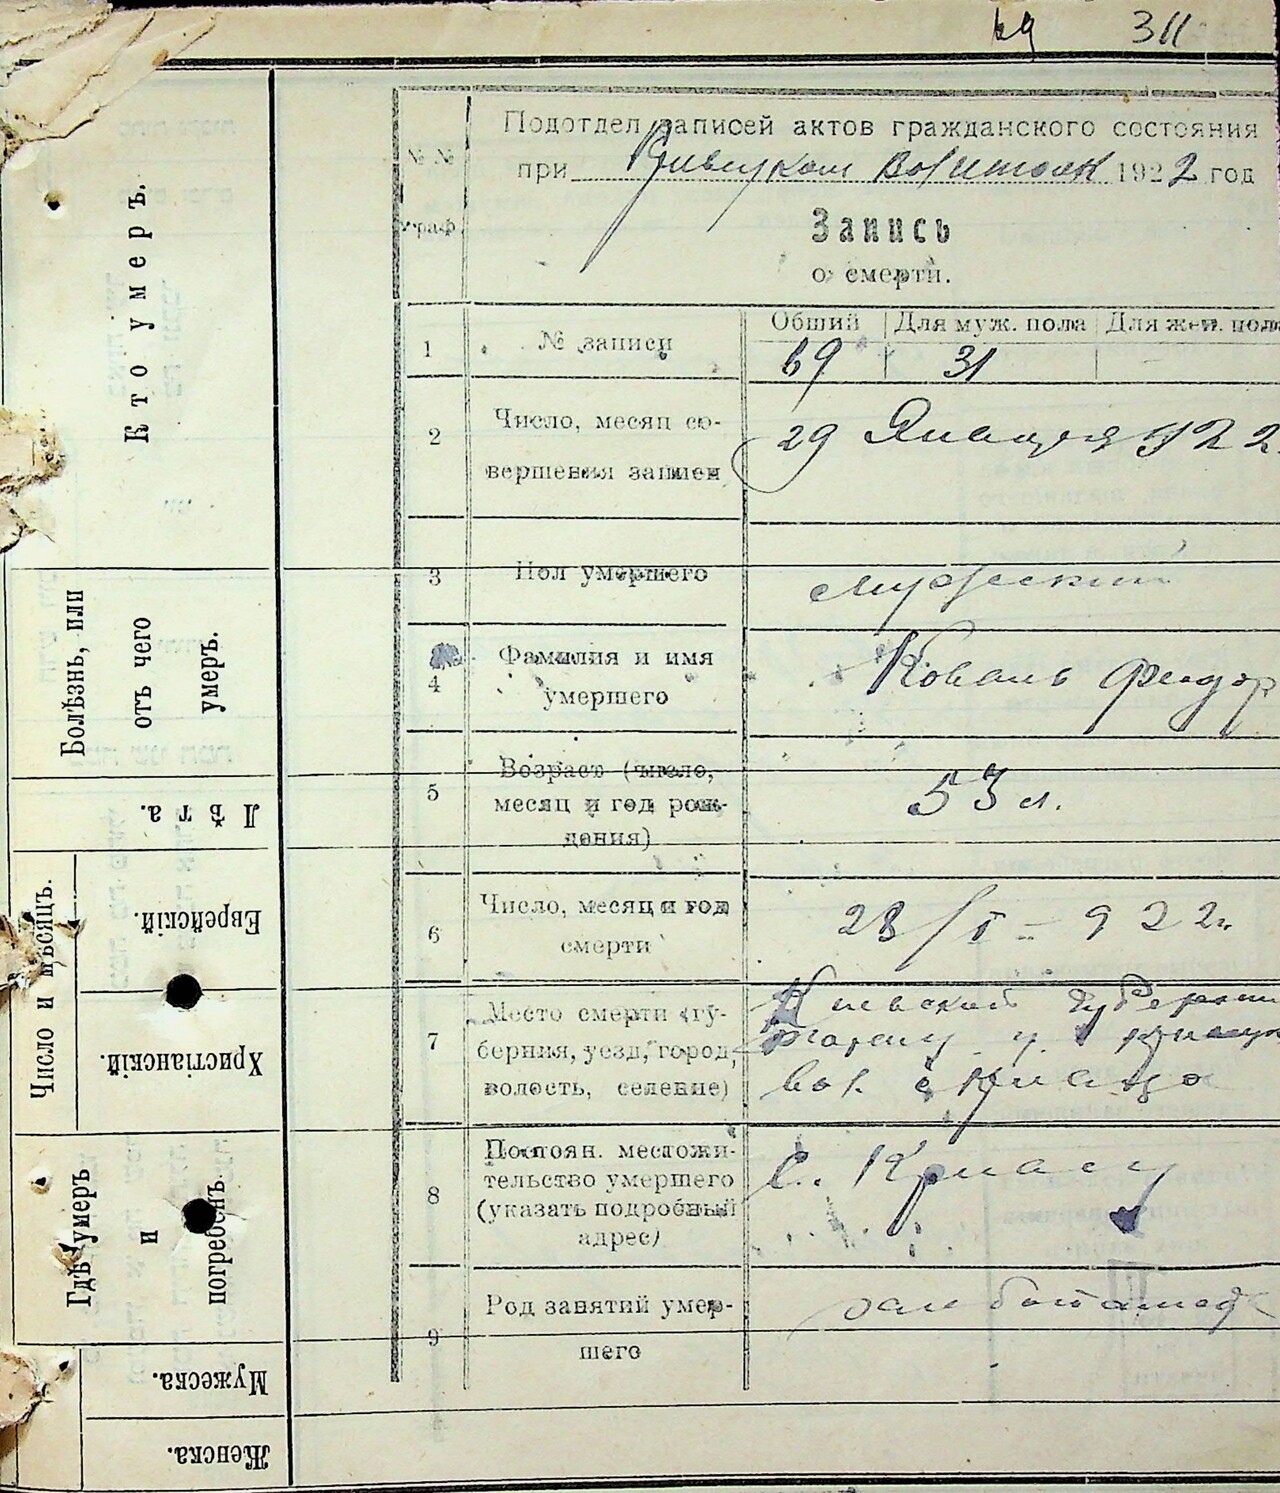 69 311
Подотдел записей актов гражданского состояния
при 1922 год
№ №
граф
Запись
о смерти.
1 № записи Общий Для муж. пола Для жен. пола
69 31
2 Число, месяц со-
вершения записи
29 Января 922
3 Пол умершего мужеский
4 Фамилия и имя
умершего
Коваль Федор
5 Возраст (число,
месяц и год рож-
дения)
53 л.
6 Число, месяц и год
смерти
28/I - 922 г.
7 Место смерти (гу-
берния, уезд, город,
волость, селение)
Киевской губернии
вол. с
8 Постоян. местожи-
тельство умершего
(указать подробный
адрес)
С.
9 Род занятий умер-
шего
Кто умеръ.
Болѣзнь, или
отъ чего
умеръ.
Лѣта.
Число и мѣсяцъ.
Еврейскій.
Христіанскій.
Гдѣ умеръ
и
погребенъ.
Мужеска.
Женска.